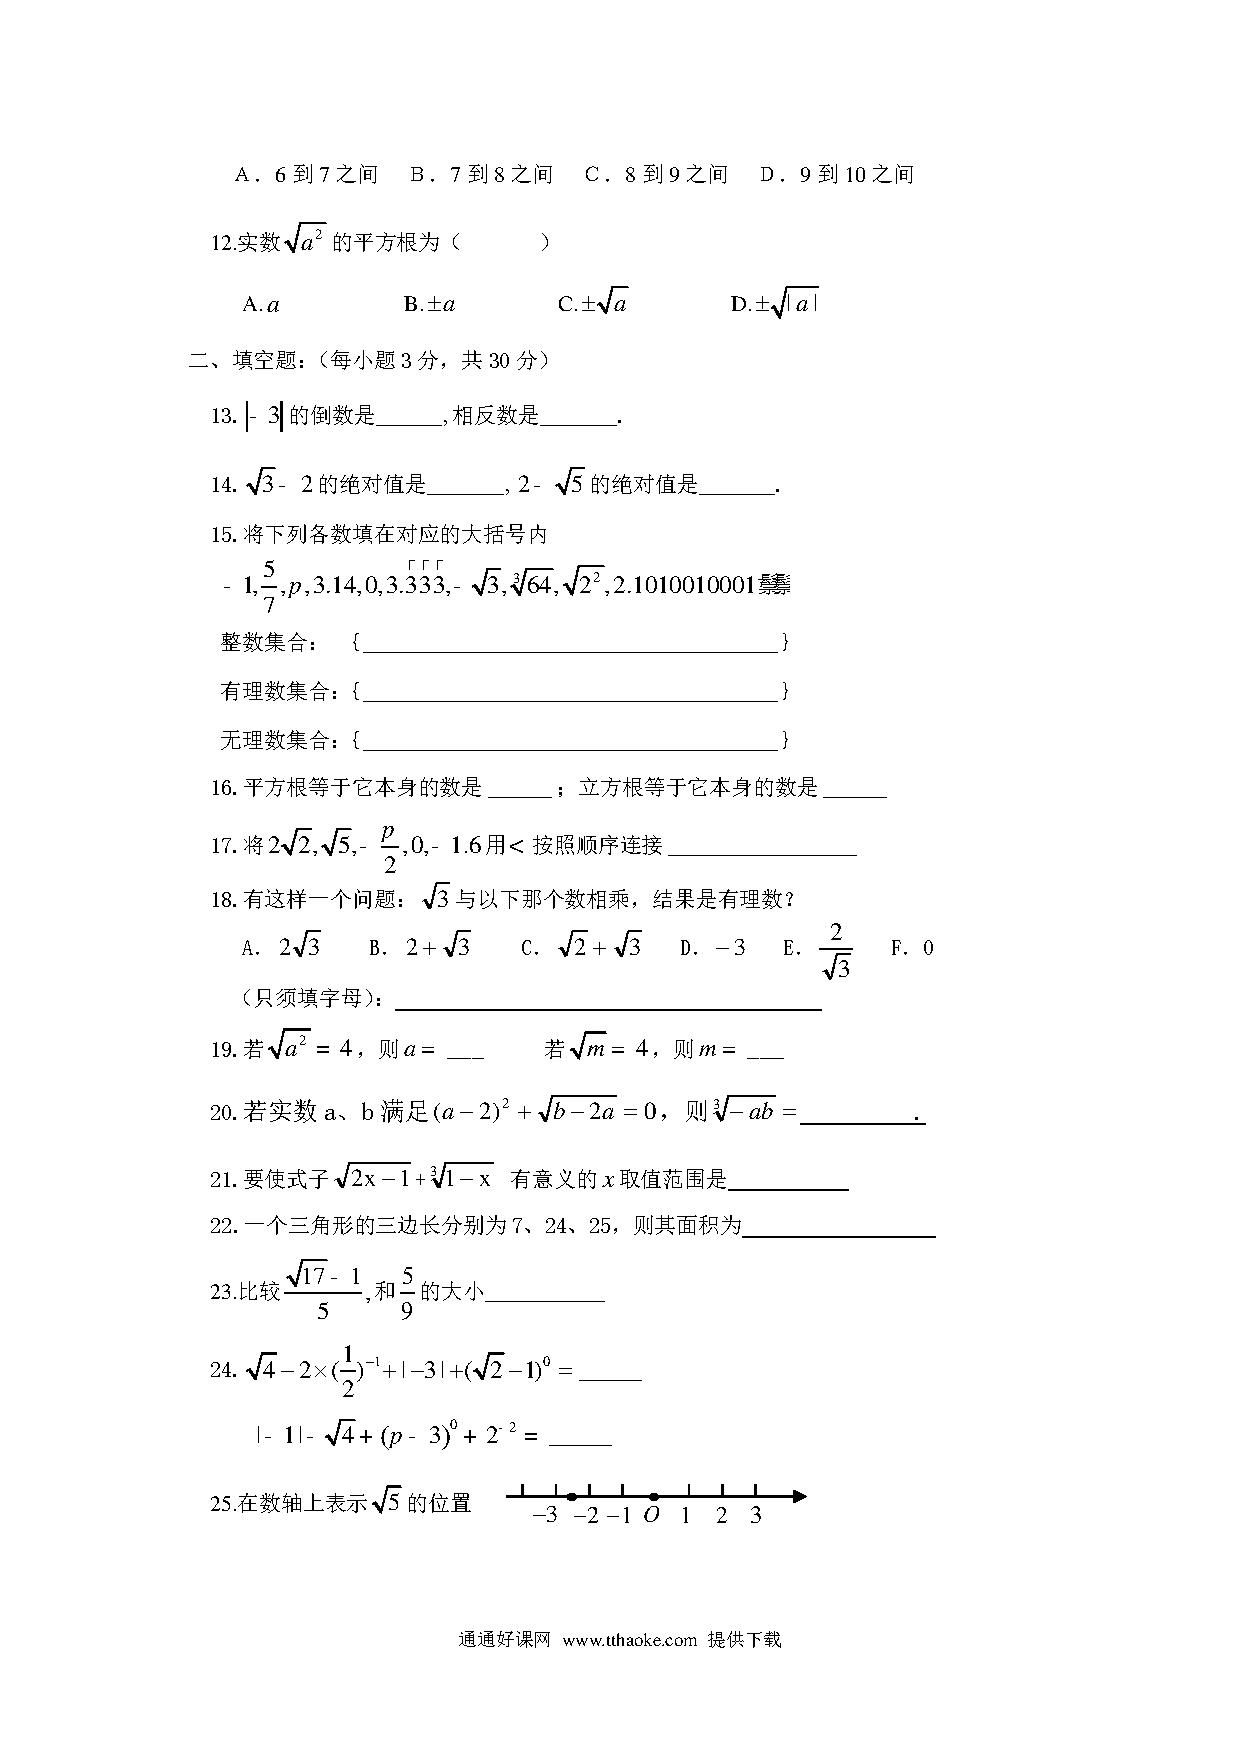 A．6 到 7 之间 B．7 到 8 之间 C．8 到 9 之间 D．9 到 10 之间
12.实数 √a² 的平方根为（ ）
A. a B. ±a C. ±√a D. ±√|a|
二、填空题：（每小题 3 分，共 30 分）
13. |- 3| 的倒数是______,相反数是_______.
14. √3- 2的绝对值是_______, 2- √5 的绝对值是_______.
15. 将下列各数填在对应的大括号内
- 1, 5/7 ,p,3.14,0,3.333,- √3, ∛64, √2² ,2.1010010001
整数集合： {______________________________________}
有理数集合：{______________________________________}
无理数集合：{______________________________________}
16. 平方根等于它本身的数是______；立方根等于它本身的数是______
17. 将2√2, √5,- p/2 ,0,- 1.6用< 按照顺序连接_________________
18. 有这样一个问题： √3 与以下那个数相乘，结果是有理数?
A． 2√3 B． 2+√3 C． √2+√3 D．−3 E． 2/√3 F．0
（只须填字母）：______________________
19. 若√a² = 4，则a = ___ 若 √m = 4，则m = ___
20. 若实数 a、b 满足(a−2)² + √b−2a =0，则 ∛−ab =_________.
21. 要使式子 √2x−1+∛1−x 有意义的 x 取值范围是___________
22. 一个三角形的三边长分别为 7、24、25，则其面积为_________________
23.比较 (√17- 1)/5 ,和 5/9 的大小___________
24. √4−2×(1/2)⁻¹+|−3|+(√2−1)⁰ =_____
|- 1|- √4+ (p- 3)⁰ + 2⁻² = _____
25.在数轴上表示 √5 的位置
−3 −2 −1 O 1 2 3
通通好课网 www.tthaoke.com 提供下载